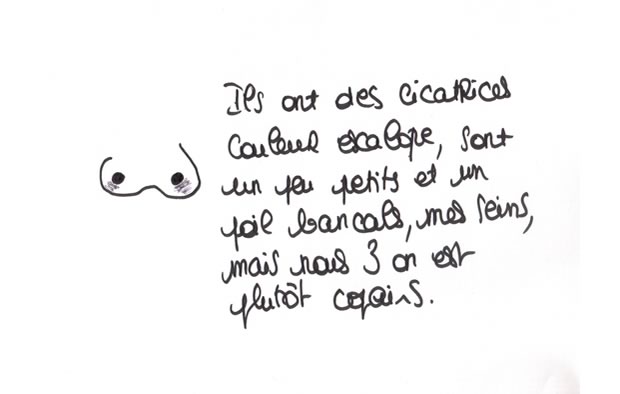 Ils ont des cicatrices
couleur escalope, sont
un peu petits et un
poil bancals, mes seins,
mais nous 3 on est
plutôt copains.